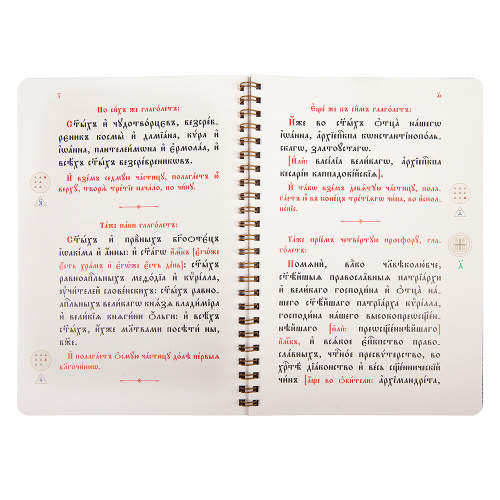 По си́хъ же глаго́летъ:
Ст҃ы́хъ и҆ чꙋдотво́рцєвъ, безсре́б-
рєникъ космы̀ и҆ дамїа́на, кѵ́ра и҆
і҆ѡа́нна, пантелеи́мѡна и҆ є҆рмола́а, и҆
всѣ́хъ ст҃ы́хъ безсре́бреникѡвъ.
И҆ взе́мъ седмꙋ́ю части́цꙋ, полага́етъ ю҆̀
верхꙋ̀, творѧ̀ тре́тїе нача́ло, по чи́нꙋ.
Та́же па́ки глаго́летъ:
Ст҃ы́хъ и҆ првⷣныхъ бг҃оѻте́цъ
і҆ѡакі́ма и҆ а҆́нны: и҆ ст҃а́гѡ и҆́мкъ [є҆гѡ́же
є҆́сть хра́мъ и҆ є҆гѡ́же є҆́сть де́нь]: ст҃ы́хъ
равноапⷭ҇льныхъ меѳо́дїа и҆ кѷрі́лла,
ᲂу҆чи́телей слове́нскихъ: ст҃ы́хъ равно-
апⷭ҇льныхъ вели́кагѡ кнѧ́зѧ влади́мїра
и҆ вели́кїѧ кнѧги́ни ѻ҆́льги: и҆ всѣ́хъ
ст҃ы́хъ, и҆́хже мл҃твами посѣтѝ ны̀,
бж҃е.
И҆ полага́етъ ѻ҆смꙋ́ю части́цꙋ до́лѣ пе́рвыѧ
благочи́ннѡ.
Є҆ще́ же въ си́мъ глаго́летъ:
И҆́же во ст҃ы́хъ ѻ҆тца̀ на́шегѡ
і҆ѡа́нна, а҆рхїепⷭ҇кпа кѡнстантїнопо́ль-
скагѡ, златоꙋ́стагѡ.
[И҆лѝ: васі́лїа вели́кагѡ, а҆рхїепⷭ҇кпа
кесарі́и каппадокі́йскїѧ].
И҆ та́кѡ взе́мъ девѧ́тꙋю части́цꙋ, пола-
га́етъ и҆̀ въ коне́цъ тре́тїѧгѡ чи́на, во и҆спол-
не́нїе.
Та́же прїе́мъ четве́ртꙋю просфорꙋ̀, гла-
го́летъ:
Помѧнѝ, влⷣко чл҃вѣколю́бче,
ст҃ѣ́йшыѧ правосла́вныѧ патрїа́рхи
и҆ вели́каго господи́на и҆ ѻ҆тца̀ на́-
шего ст҃ѣ́йшаго патрїа́рха кѷрі́лла,
господи́на на́шего высокопреѡсщ҃е́н-
нѣйшаго [и҆лѝ: преѡсщ҃е́ннѣйшаго]
и҆́мкъ, и҆ всѧ́кое є҆пⷭ҇кпство право-
сла́вныхъ, чтⷭ҇но́е пресвѵ́терство, во
хрⷭ҇тѣ̀ дїа́конство и҆ ве́сь сщ҃е́нническїй
чи́нъ [а҆́ще во ѻ҆би́тели: а҆рхїмандрі́та,